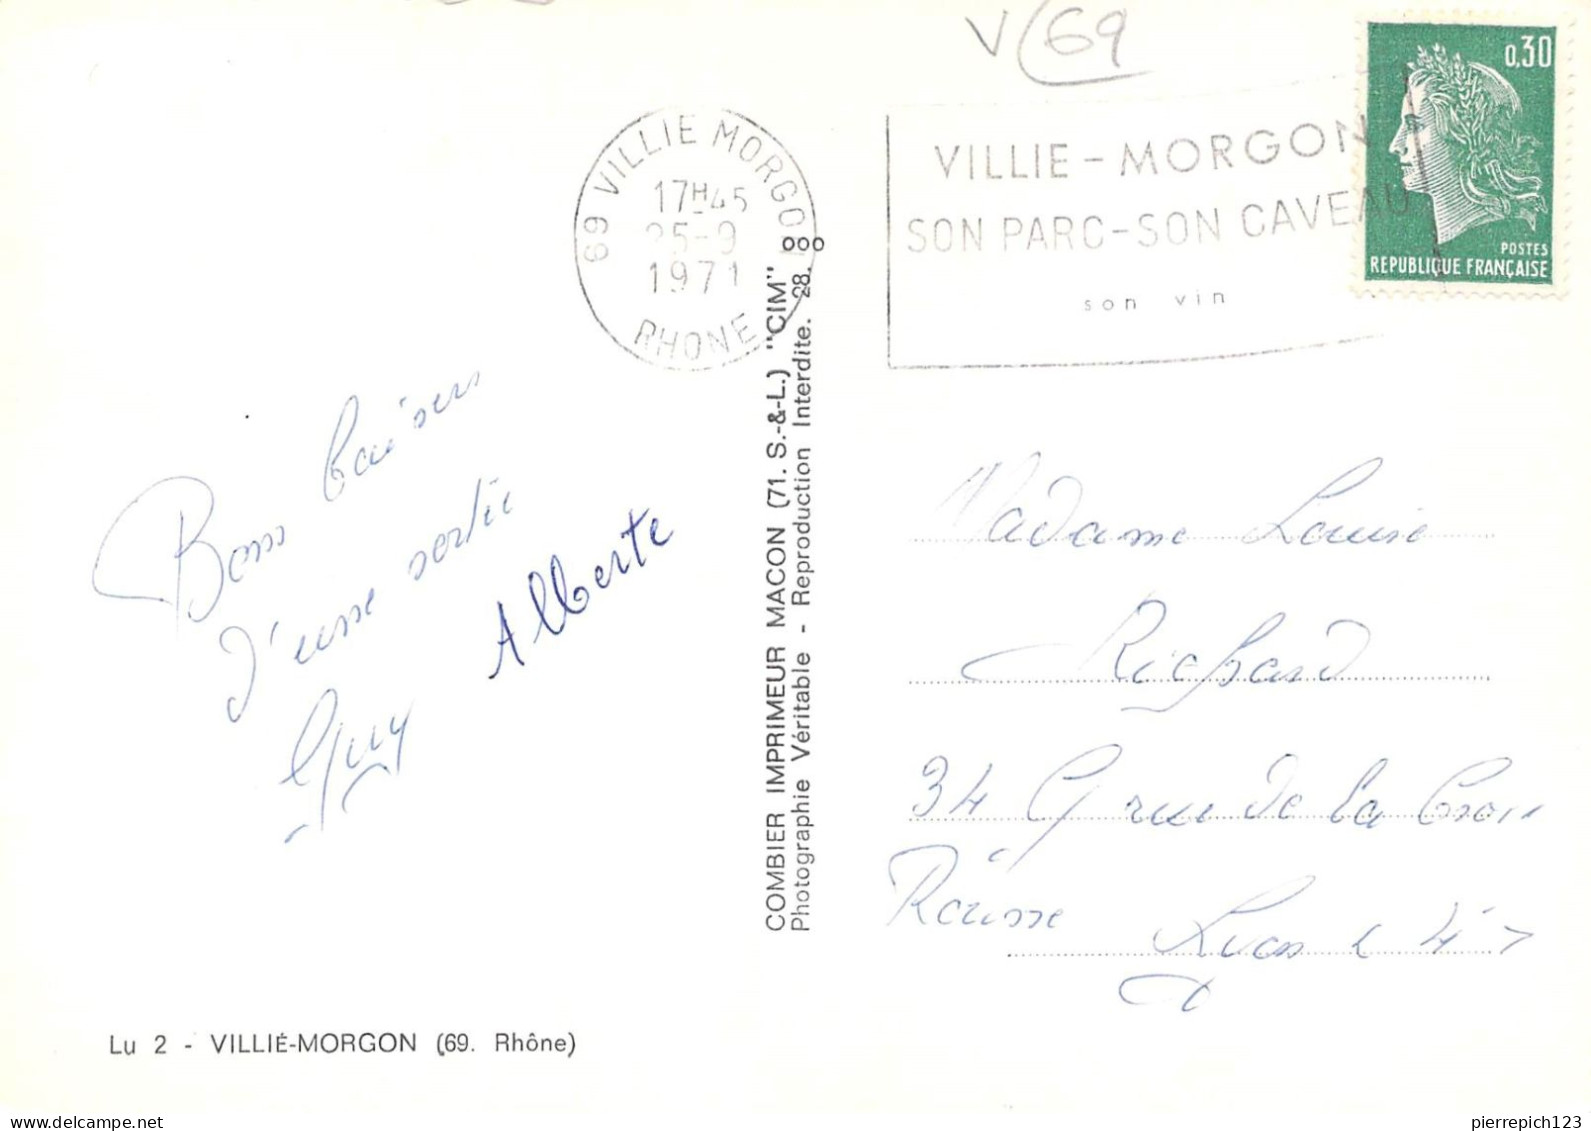 V 69
0,30
POSTES
REPUBLIQUE FRANÇAISE
69 VILLIE MORGON
17H45
25-9
1971
RHONE
VILLIE-MORGON
SON PARC-SON CAVEAU
son vin
Bons baisers
d'une sortie
Guy Alberte
COMBIER IMPRIMEUR MACON (71. S.-&-L.) "CIM"
Photographie Véritable - Reproduction Interdite. 28. 000
Madame Louise
Richard
34 Gr rue de la Croix
Rousse
Lyon (4)
Lu 2 - VILLIÉ-MORGON (69. Rhône)
pierrepich123